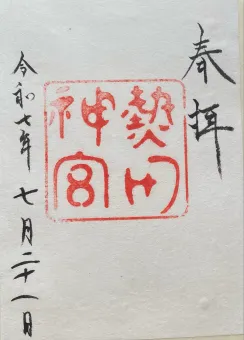 奉拝
熱田
神宮
令和七年 七月二十一日